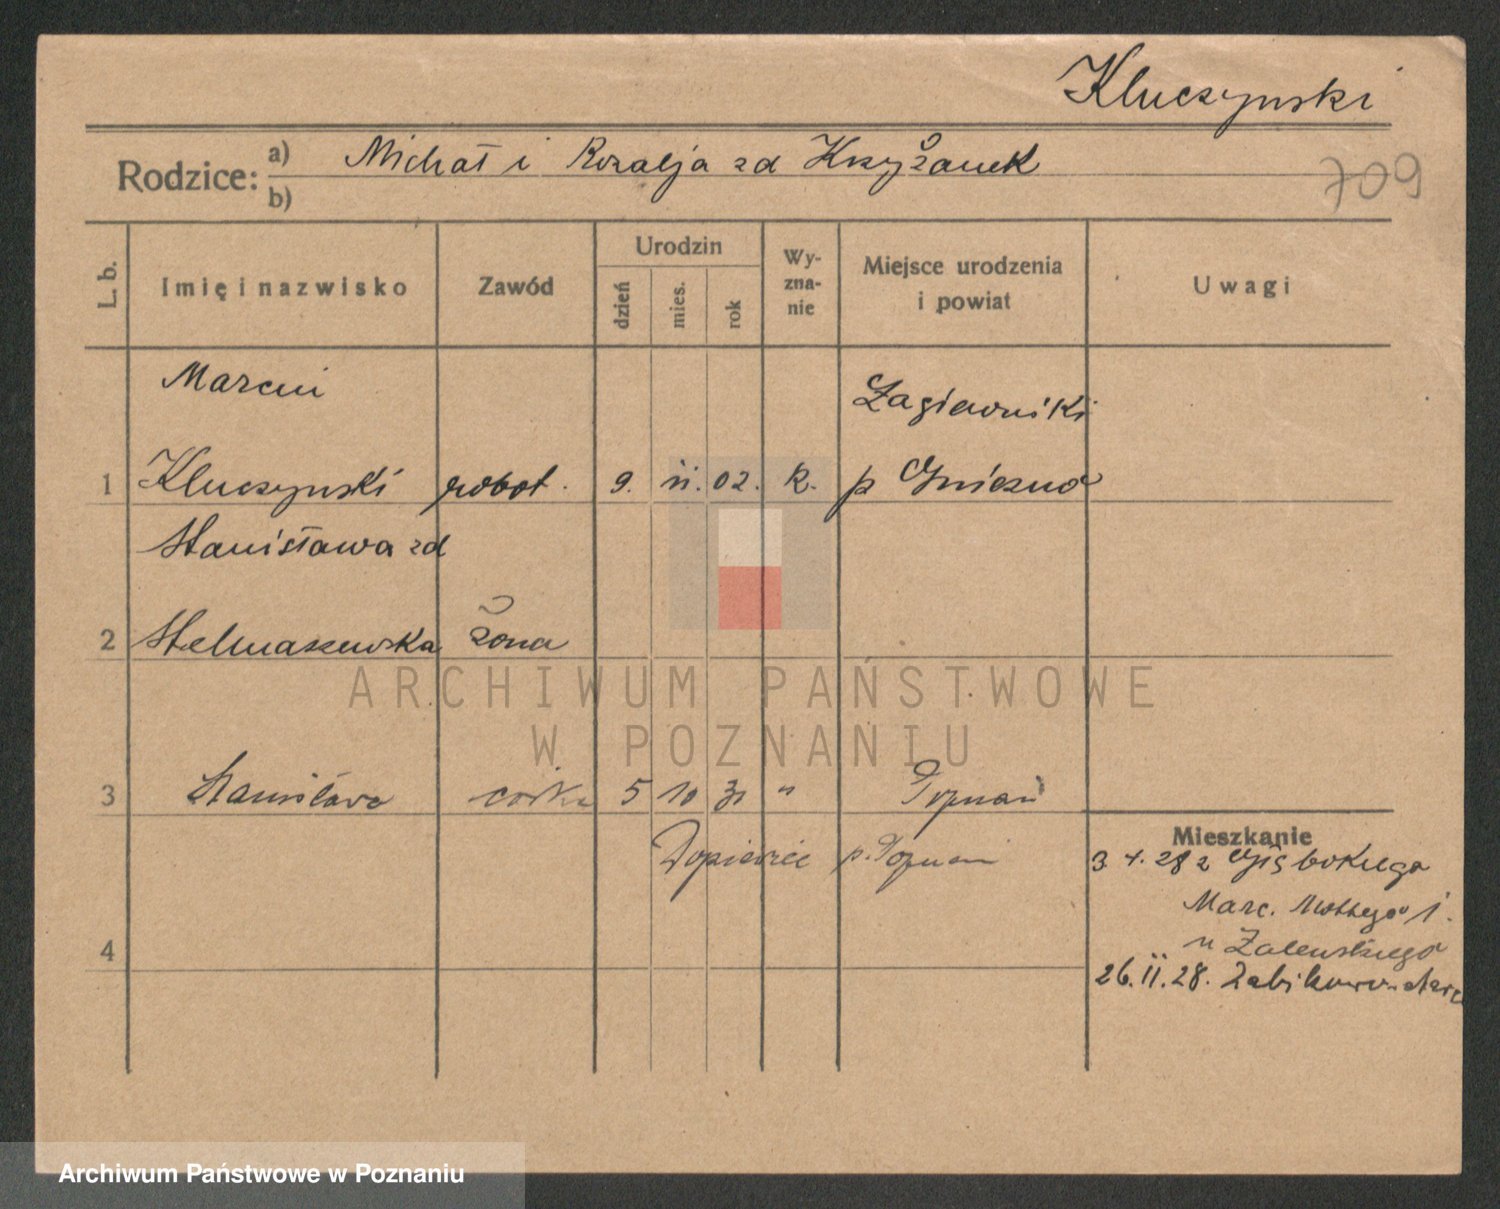 Kluczynski
Rodzice: a) Michał i Rozalja zd Krzyżanek
b)
709
L. b.
Imię i nazwisko
Zawód
Urodzin
dzień
mies.
rok
Wy-
zna-
nie
Miejsce urodzenia
i powiat
Uwagi
Marcin
Łagiewniki
1 Kluczynski robot. 9. 11. 02. R. p Gniezno
Stanisława zd
2 Stelmaszewska żona
ARCHIWUM PAŃSTWOWE
W POZNANIU
3 Stanisława córka 5 10 31 " Poznań
Mieszkanie
Dopiewiec p. Poznań
3 4. 28 z
Marc. 1.
u Zalewskiego
4
26. II. 28. Żabikowo
Archiwum Państwowe w Poznaniu